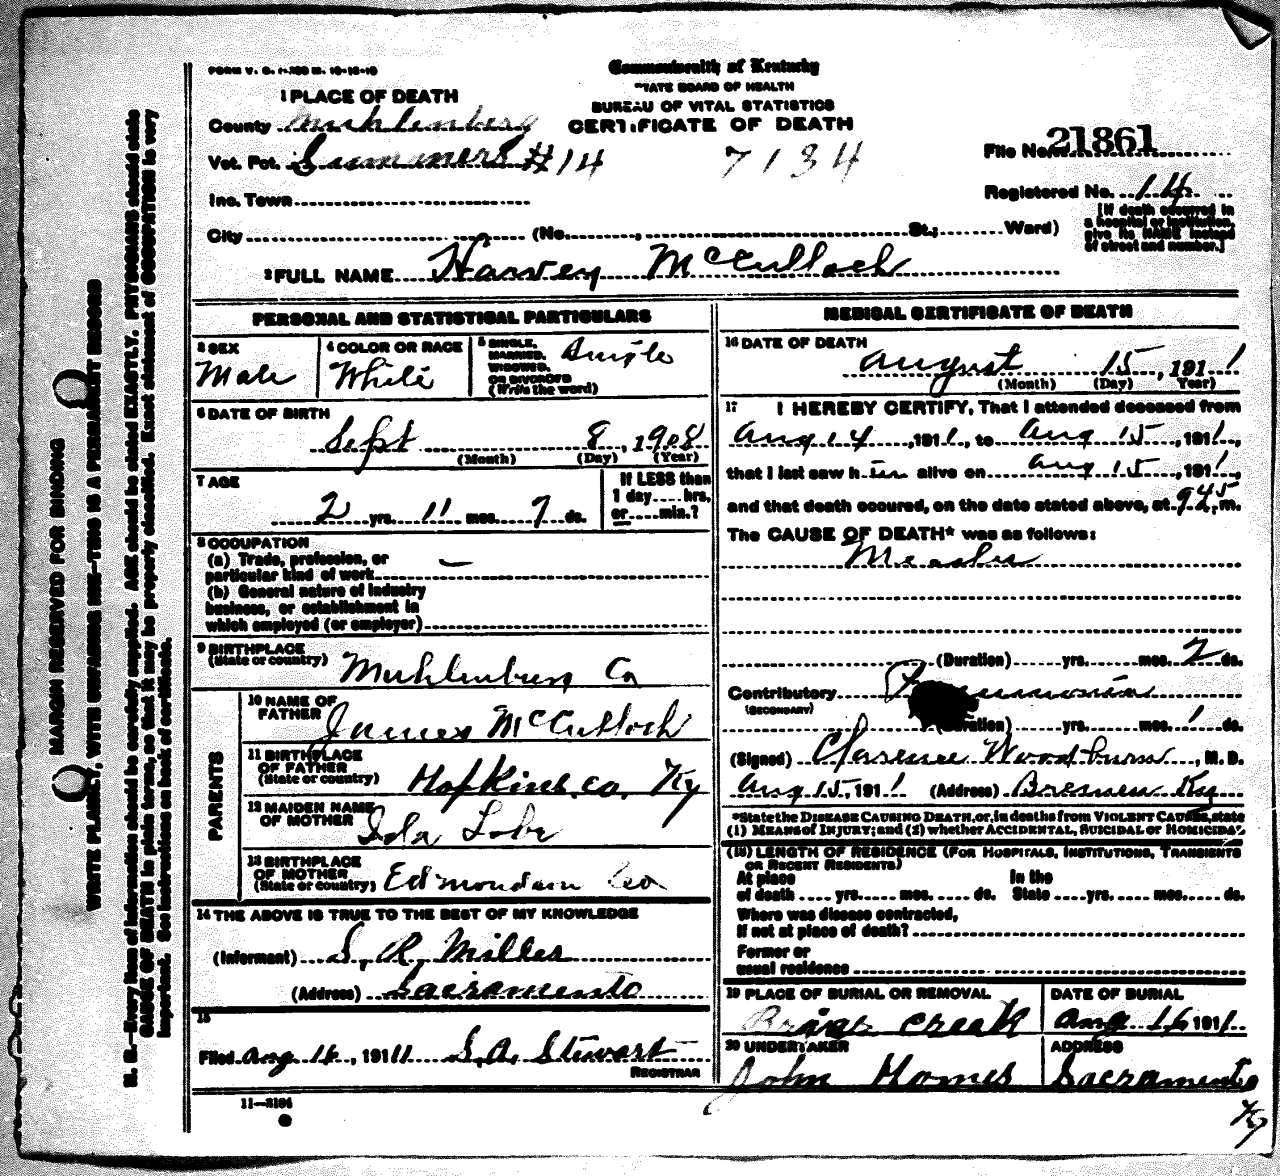 FORM V. S. 1-
Commonwealth of Kentucky
STATE BOARD OF HEALTH
BUREAU OF VITAL STATISTICS
CERTIFICATE OF DEATH
1 PLACE OF DEATH
County Muhlenberg
Vot. Pct. Summers #14
7134
File No. 21861
Registered No. 14
Inc. Town
City (No. , St.; Ward)
[If death occurred in
a hospital or institution,
give its NAME instead
of street and number.]
2 FULL NAME Harvey McCulloch
PERSONAL AND STATISTICAL PARTICULARS
3 SEX
Male
4 COLOR OR RACE
White
5 SINGLE,
MARRIED,
WIDOWED,
OR DIVORCED
(Write the word)
Single
6 DATE OF BIRTH
Sept 8, 1908
(Month) (Day) (Year)
7 AGE
2 yrs. 11 mos. 7 ds.
If LESS than
1 day hrs.
or min.?
8 OCCUPATION
(a) Trade, profession, or
particular kind of work —
(b) General nature of industry
business, or establishment in
which employed (or employer)
9 BIRTHPLACE
(State or country) Muhlenburg Co
PARENTS
10 NAME OF
FATHER James McCulloch
11 BIRTHPLACE
OF FATHER
(State or country) Hopkins. co. Ky
12 MAIDEN NAME
OF MOTHER Ida
13 BIRTHPLACE
OF MOTHER
(State or country)
14 THE ABOVE IS TRUE TO THE BEST OF MY KNOWLEDGE
(Informant) S. R. Miller
(Address) Sacramento
15
Filed Aug 16, 1911 S. A. Stewart
REGISTRAR
11—3184
MEDICAL CERTIFICATE OF DEATH
16 DATE OF DEATH
August 15, 1911
(Month) (Day) (Year)
17 I HEREBY CERTIFY, That I attended deceased from
Aug 14, 1911, to Aug 15, 1911,
that I last saw him alive on Aug 15, 1911,
and that death occured, on the date stated above, at 945 m.
The CAUSE OF DEATH* was as follows:
Measles
(Duration) yrs. mos. 2 ds.
Contributory Pneumonia
(SECONDARY)
(Duration) yrs. mos. 1 ds.
(Signed) Clarence Woodburn, M. D.
Aug 15, 1911 (Address) Bremen Ky
*State the DISEASE CAUSING DEATH, or, in deaths from VIOLENT CAUSES, state
(1) MEANS OF INJURY; and (2) whether ACCIDENTAL, SUICIDAL or HOMICIDAL
(18) LENGTH OF RESIDENCE (FOR HOSPITALS, INSTITUTIONS, TRANSIENTS
OR RECENT RESIDENTS)
At place In the
of death yrs. mos. ds. State yrs. mos. ds.
Where was disease contracted,
If not at place of death?
Former or
usual residence
19 PLACE OF BURIAL OR REMOVAL
Briar Creek
DATE OF BURIAL
Aug 16 1911
20 UNDERTAKER
John Homes
ADDRESS
Sacramento
Ky
MARGIN RESERVED FOR BINDING
WRITE PLAINLY, WITH UNFADING INK—THIS IS A PERMANENT RECORD
N. B.—Every item of information should be carefully supplied. AGE should be stated EXACTLY. PHYSICIANS should state
CAUSE OF DEATH in plain terms, so that it may be properly classified. Exact statement of OCCUPATION is very
important. See instructions on back of certificate.